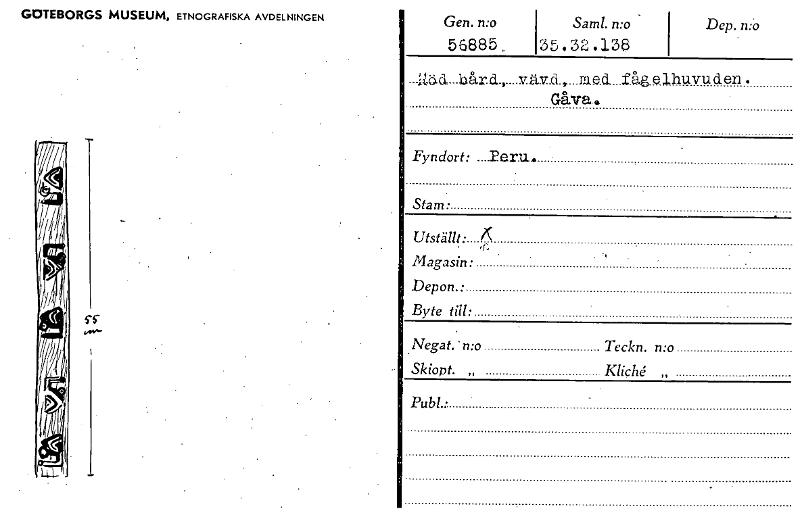 GÖTEBORGS MUSEUM, ETNOGRAFISKA AVDELNINGEN
Gen. n:o Saml. n:o Dep. n:o
56885. 35.32.138
Röd bård, vävd, med fågelhuvuden.
Gåva.
Fyndort: Peru.
Stam:
Utställt: X
Magasin:
Depon.:
Byte till:
Negat. n:o Teckn. n:o
Skiopt. „ Kliché „
Publ.:
55
cm